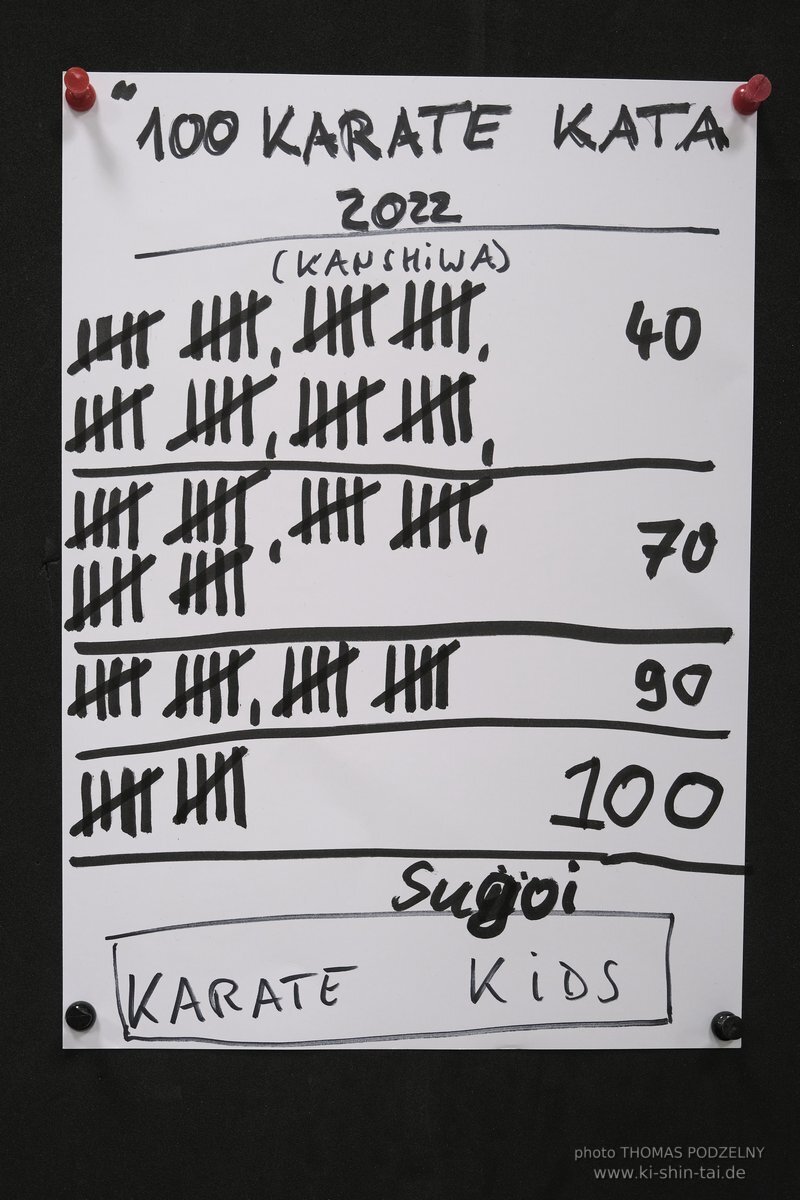 "100 KARATE KATA
2022
(KANSHiWA)
40
70
90
100
Sugoi
KARATE KiDS
photo THOMAS PODZELNY
www.ki-shin-tai.de